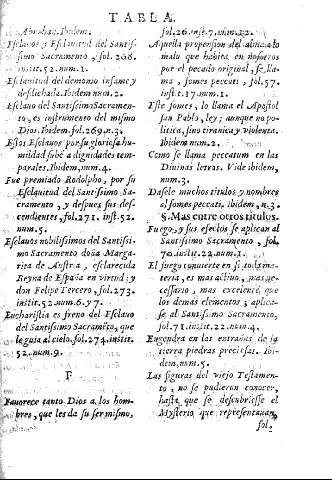 TABLA.
de Abrahan. Ibidem.
Esclavos y Esclavitud del Santissi-
mo Sacramento, fol. 268.
instit. 52. num. 1.
Esclavitud del demonio infame y
desdichada. Ibidem num. 2.
Esclavo del Santissimo Sacramen-
to, es instrumento del mismo
Dios. Ibidem fol. 269. n. 3.
Estos Esclavos por su gloriosa hu-
mildad subē a dignidades tem-
porales. Ibidem, num. 4.
Fue premiado Rodolpho, por su
Esclavitud del Santissimo Sa-
cramento, y despues sus des-
cendientes, fol. 271. inst. 52.
num. 5.
Esclavos nobilissimos del Santissi-
mo Sacramento doña Marga-
rita de Austria, esclarecida
Reyna de España en virtud; y
don Felipe Tercero, fol. 273.
instit. 52. num. 6. y 7.
Eucharistia es freno del Esclavo
del Santissimo Sacramēto, que
le guia al cielo. fol. 274. instit.
52. num. 9.
F
Favorece tanto Dios a los hom-
bres, que les da su ser mismo,
fol. 26. inst. 7. num. 12.
Aquella propension del alma a lo
malo que habita en nosotros
por el pecado original, se lla-
ma, fomes peccati, fol. 57.
inst. 17. num. 1.
Este fomes, lo llama el Apostol
san Pablo, ley; aunque no po-
litica, sino tiranica y violenta.
Ibidem num. 2.
Como se llama peccatum en las
Divinas letras. Vide ibidem,
num. 3.
Dasele muchos titulos y nombres
al fomes peccati. Ibidem, n. 3.
§. Mas entre otros titulos.
Fuego, y sus efectos se aplican al
Santissimo Sacramento, fol.
70. instit. 22. num. 1.
El fuego convierte en si toda ma-
teria, es mas activo, mas ne-
cessario, mas excelente que
los demas elementos; aplica-
se al Santissimo Sacramento,
fol. 71. instit. 22. num. 4.
Engendra en las entrañas de la
tierra piedras preciosas. Ibi-
dem, num. 5.
Las figuras del viejo Testamen-
to, no se pudieron conocer,
hasta que se descubriesse el
Mysterio que representauan,
fol.